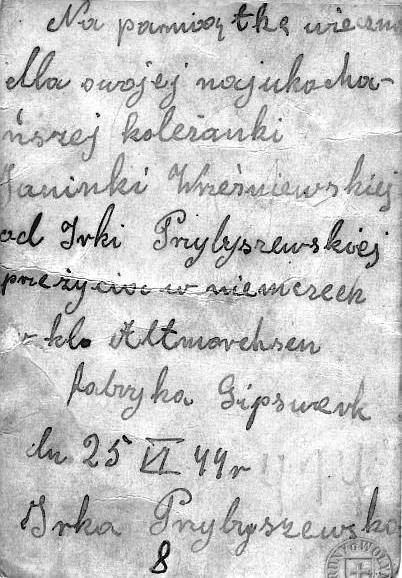 Na pamiątkę wieczną
dla swojej najukocha-
ńszej koleżanki
Janinki Wreśniewskiej
od Irki Przybyszewskiej
przeżycia w niemczech
kło Altmorchsen
fabryka Gipswerk
dn 25 VI 44 r
Irka Przybyszewska
8